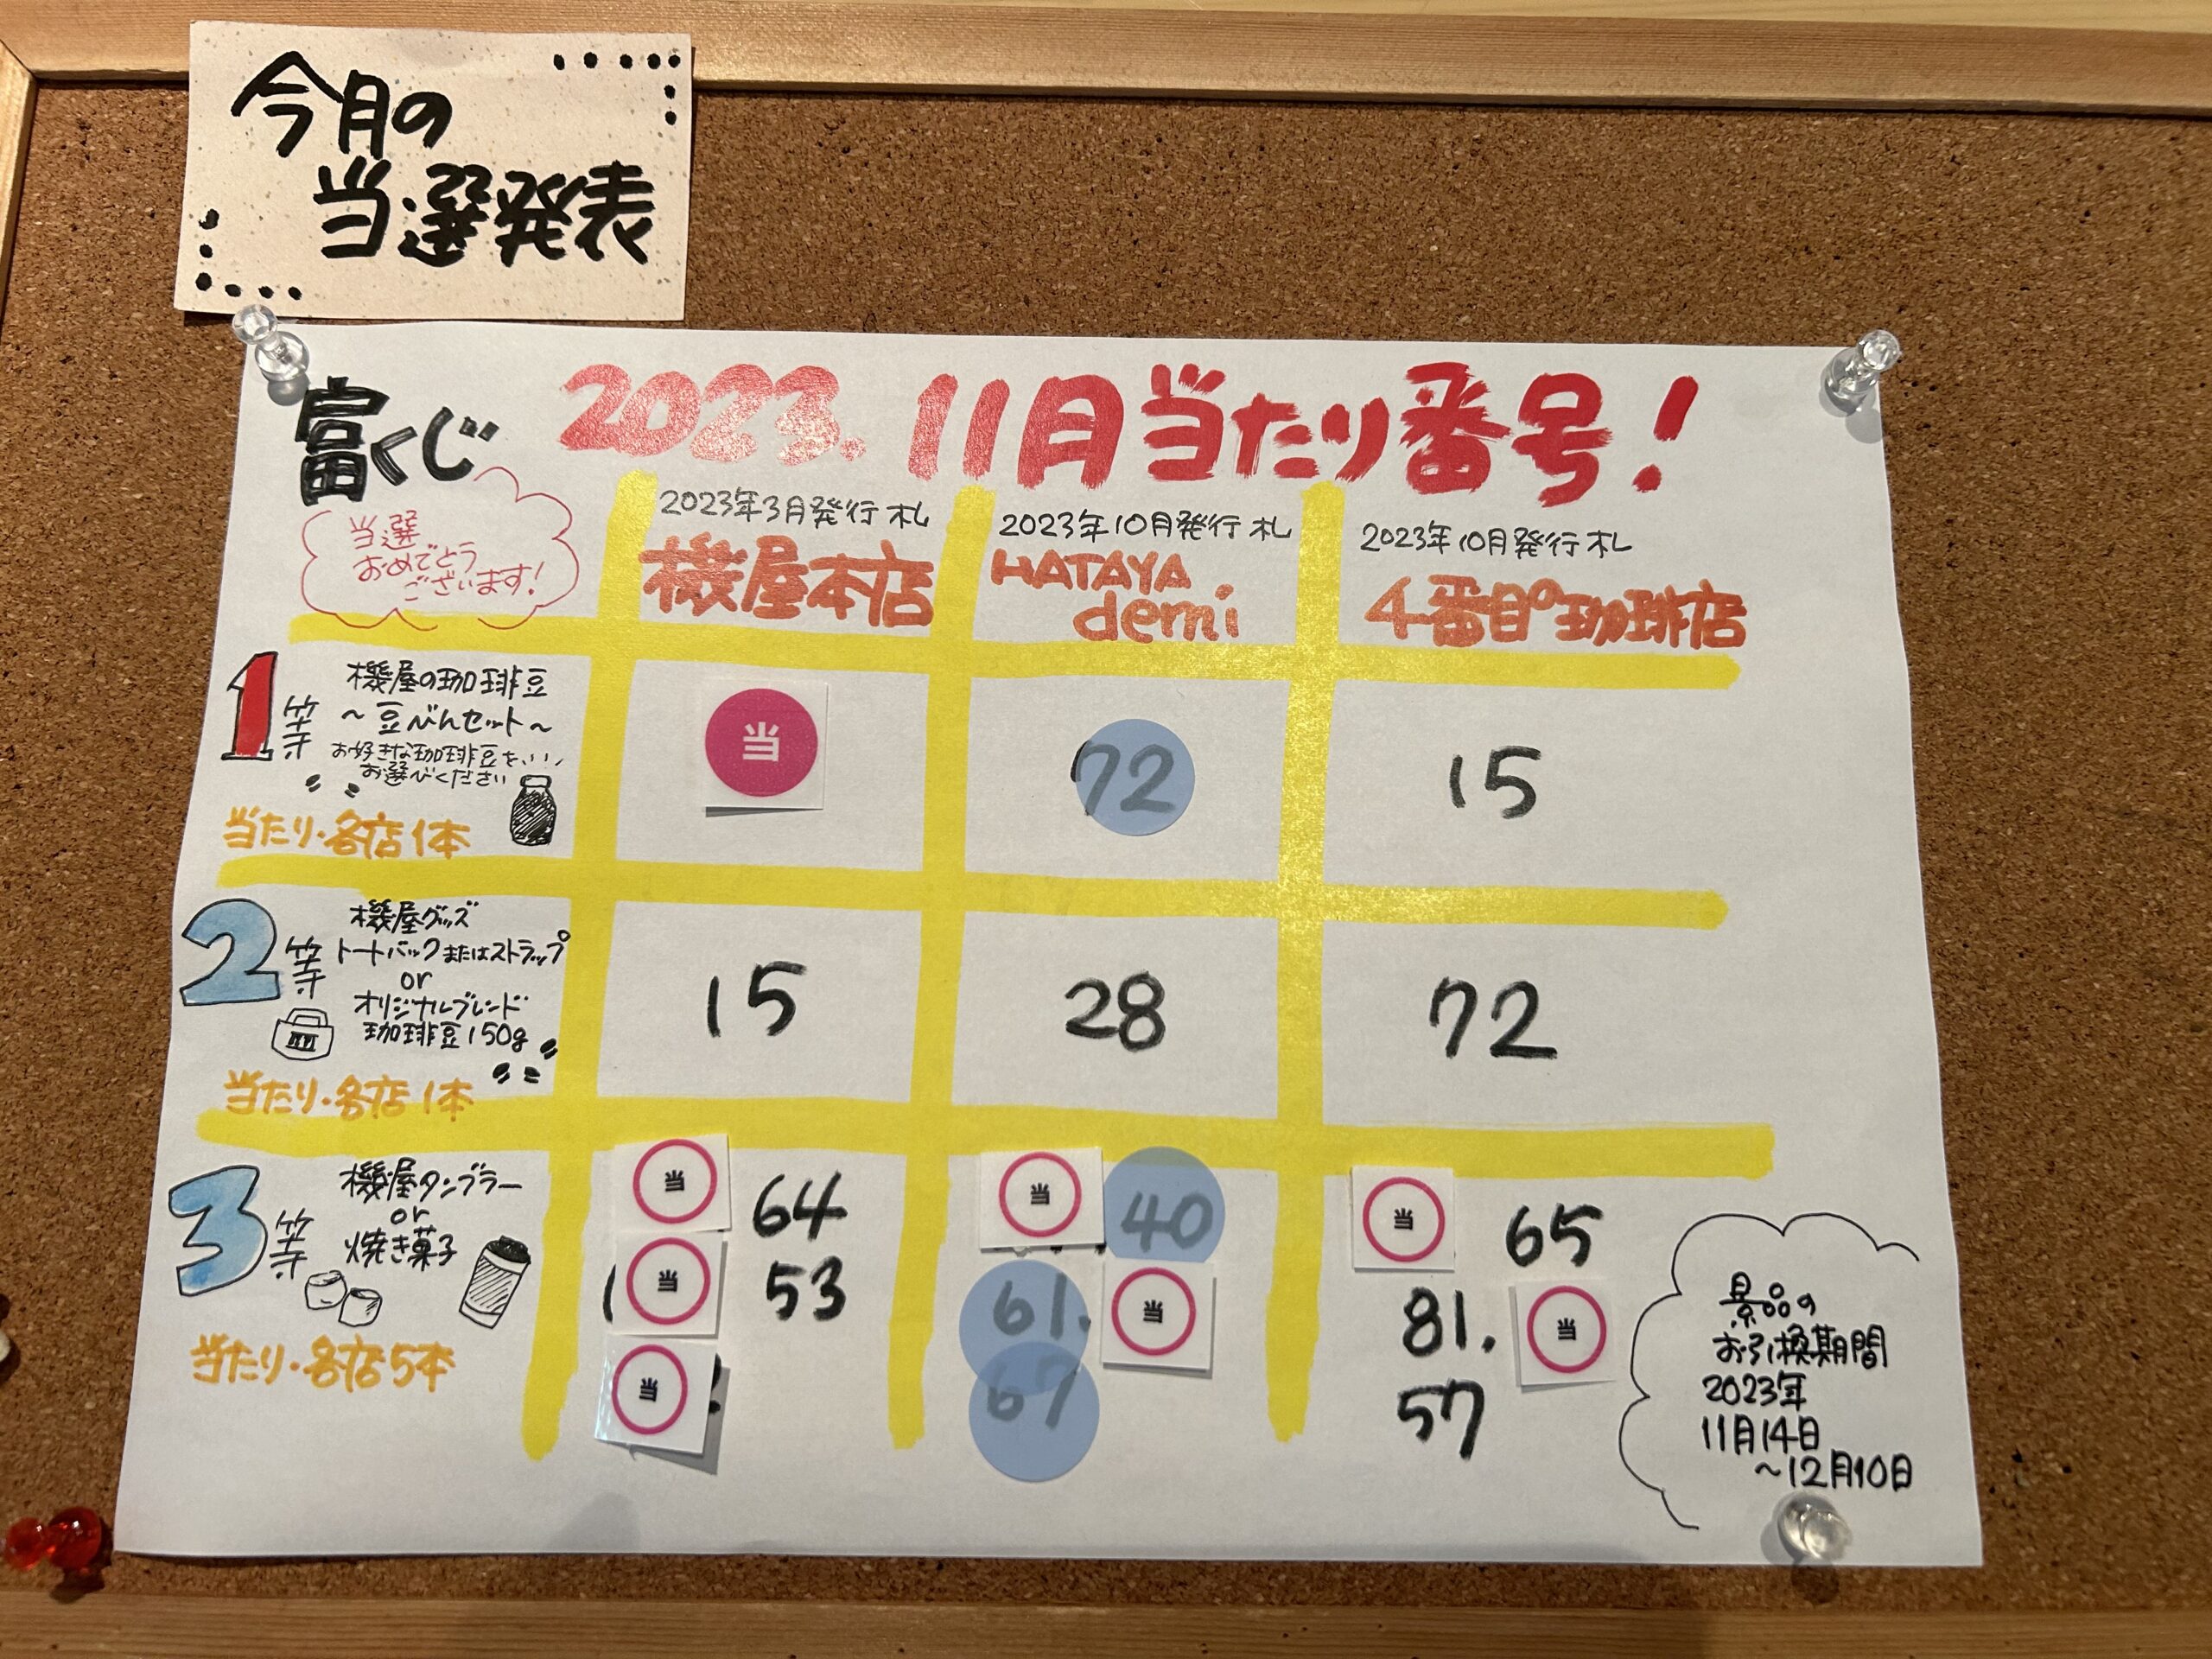 今月の
当選発表
富くじ
2023. 11月当たり番号!
当選
おめでとう
ございます!
2023年3月発行札
機屋本店
2023年10月発行札
HATAYA
demi
2023年10月発行札
4番目の珈琲店
1等
機屋の珈琲豆
～豆びんセット～
お好きな珈琲豆を...
お選びください
当たり・各店1本
当
72
15
2等
機屋グッズ
トートバックまたはストラップ
or
オリジナルブレンド
珈琲豆150g
当たり・各店1本
15
28
72
3等
機屋タンブラー
or
焼き菓子
当たり・各店5本
当 64
当 53
当
当 40
61. 当
67
当 65
81. 当
57
景品の
お引換期間
2023年
11月14日
～12月10日